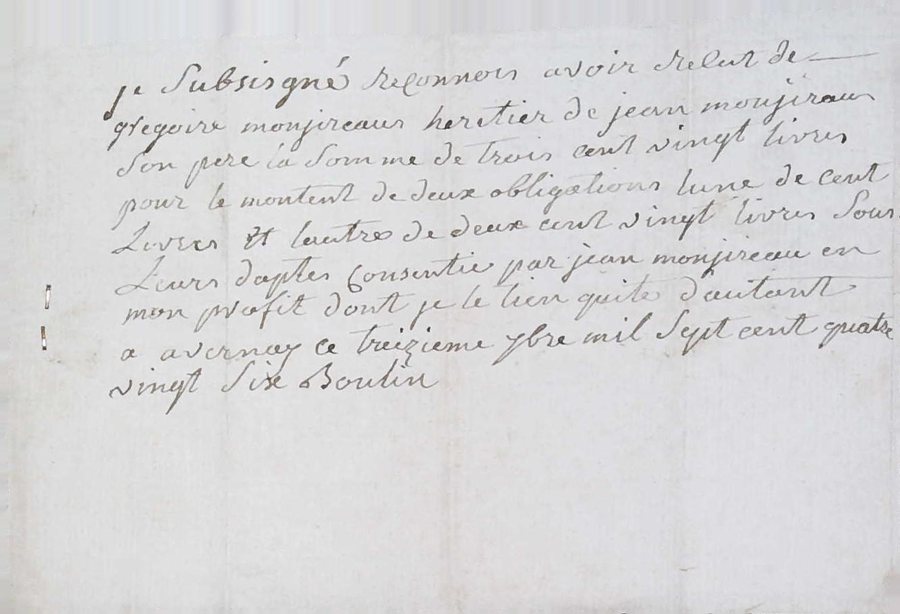 je Subsigné reconnois avoir recut de
gregoire monjireaux heretier de jean monjireaux
Son pere la Somme de trois cent vingt livres
pour le montent de deux obligations lune de cent
Livres et lautre de deux cent vingt livres Sous
Leurs daptes Consentie par jean monjireau en
mon profit dont je le tien quite dautant
a avernay ce treizieme ybre mil Sept cent quatre
vingt Six Boulin